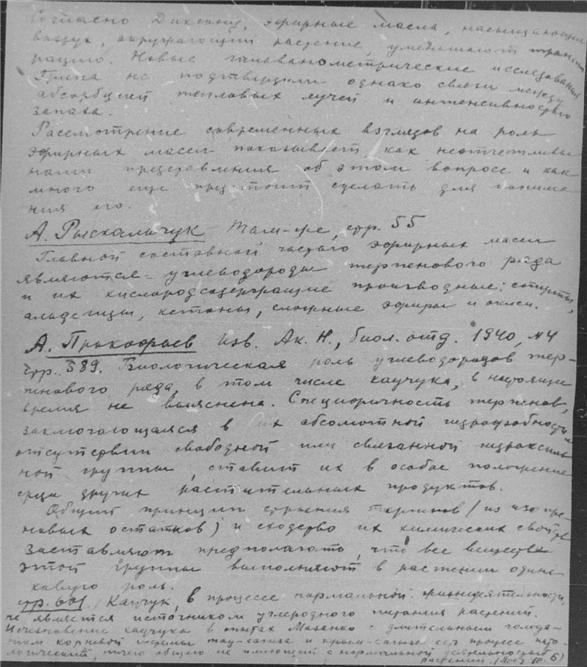 Согласно Диксону, эфирные масла, насыщающие
воздух, окружающий растение, уменьшают транспи-
рацию. Новые гальванометрические исследования
не подтвердили однако связи между
абсорбцией тепловых лучей и интенсивностью
запаха.
Рассмотрение современных взглядов на роль
эфирных масел показывает как неотчетливы
наши представления об этом вопросе и как
много еще предстоит сделать для понима
ния его.
А. Рыскальчук Там-же, стр. 55
Главной составной частью эфирных масел
являются - углеводороды терпенового ряда
и их кислородсодержащие производные: спирты,
альдегиды, кетоны, сложные эфиры и окиси.
А. Прокофьев Изв. Ак. Н., биол. отд. 1940, №4
стр. 589. Биологическая роль углеводородов тер-
пенового ряда, в том числе каучука, в настоящее
время не выяснена. Специфичность терпенов,
заключающаяся в их абсолютной гидрофобности и
отсутствии свободной или связанной гидроксиль
ной группы, ставит их в особое положение
среди других растительных продуктов.
Общий принцип строения (из изопре-
новых остатков) и сходство их химических свойств
заставляют предполагать, что все вещества
этой группы выполняют в растении одина
ковую роль.
стр. 601 Каучук, в процессе нормальной жизнедеятельности
не является источником углеродного питания растений.
Исчезновение каучука в опытах с длительным голода-
нием корневой системы тау-сагыза и крым-сагыза есть процесс пато-
логический, ничего общего не имеющий с нормальной деятельностью
растения.